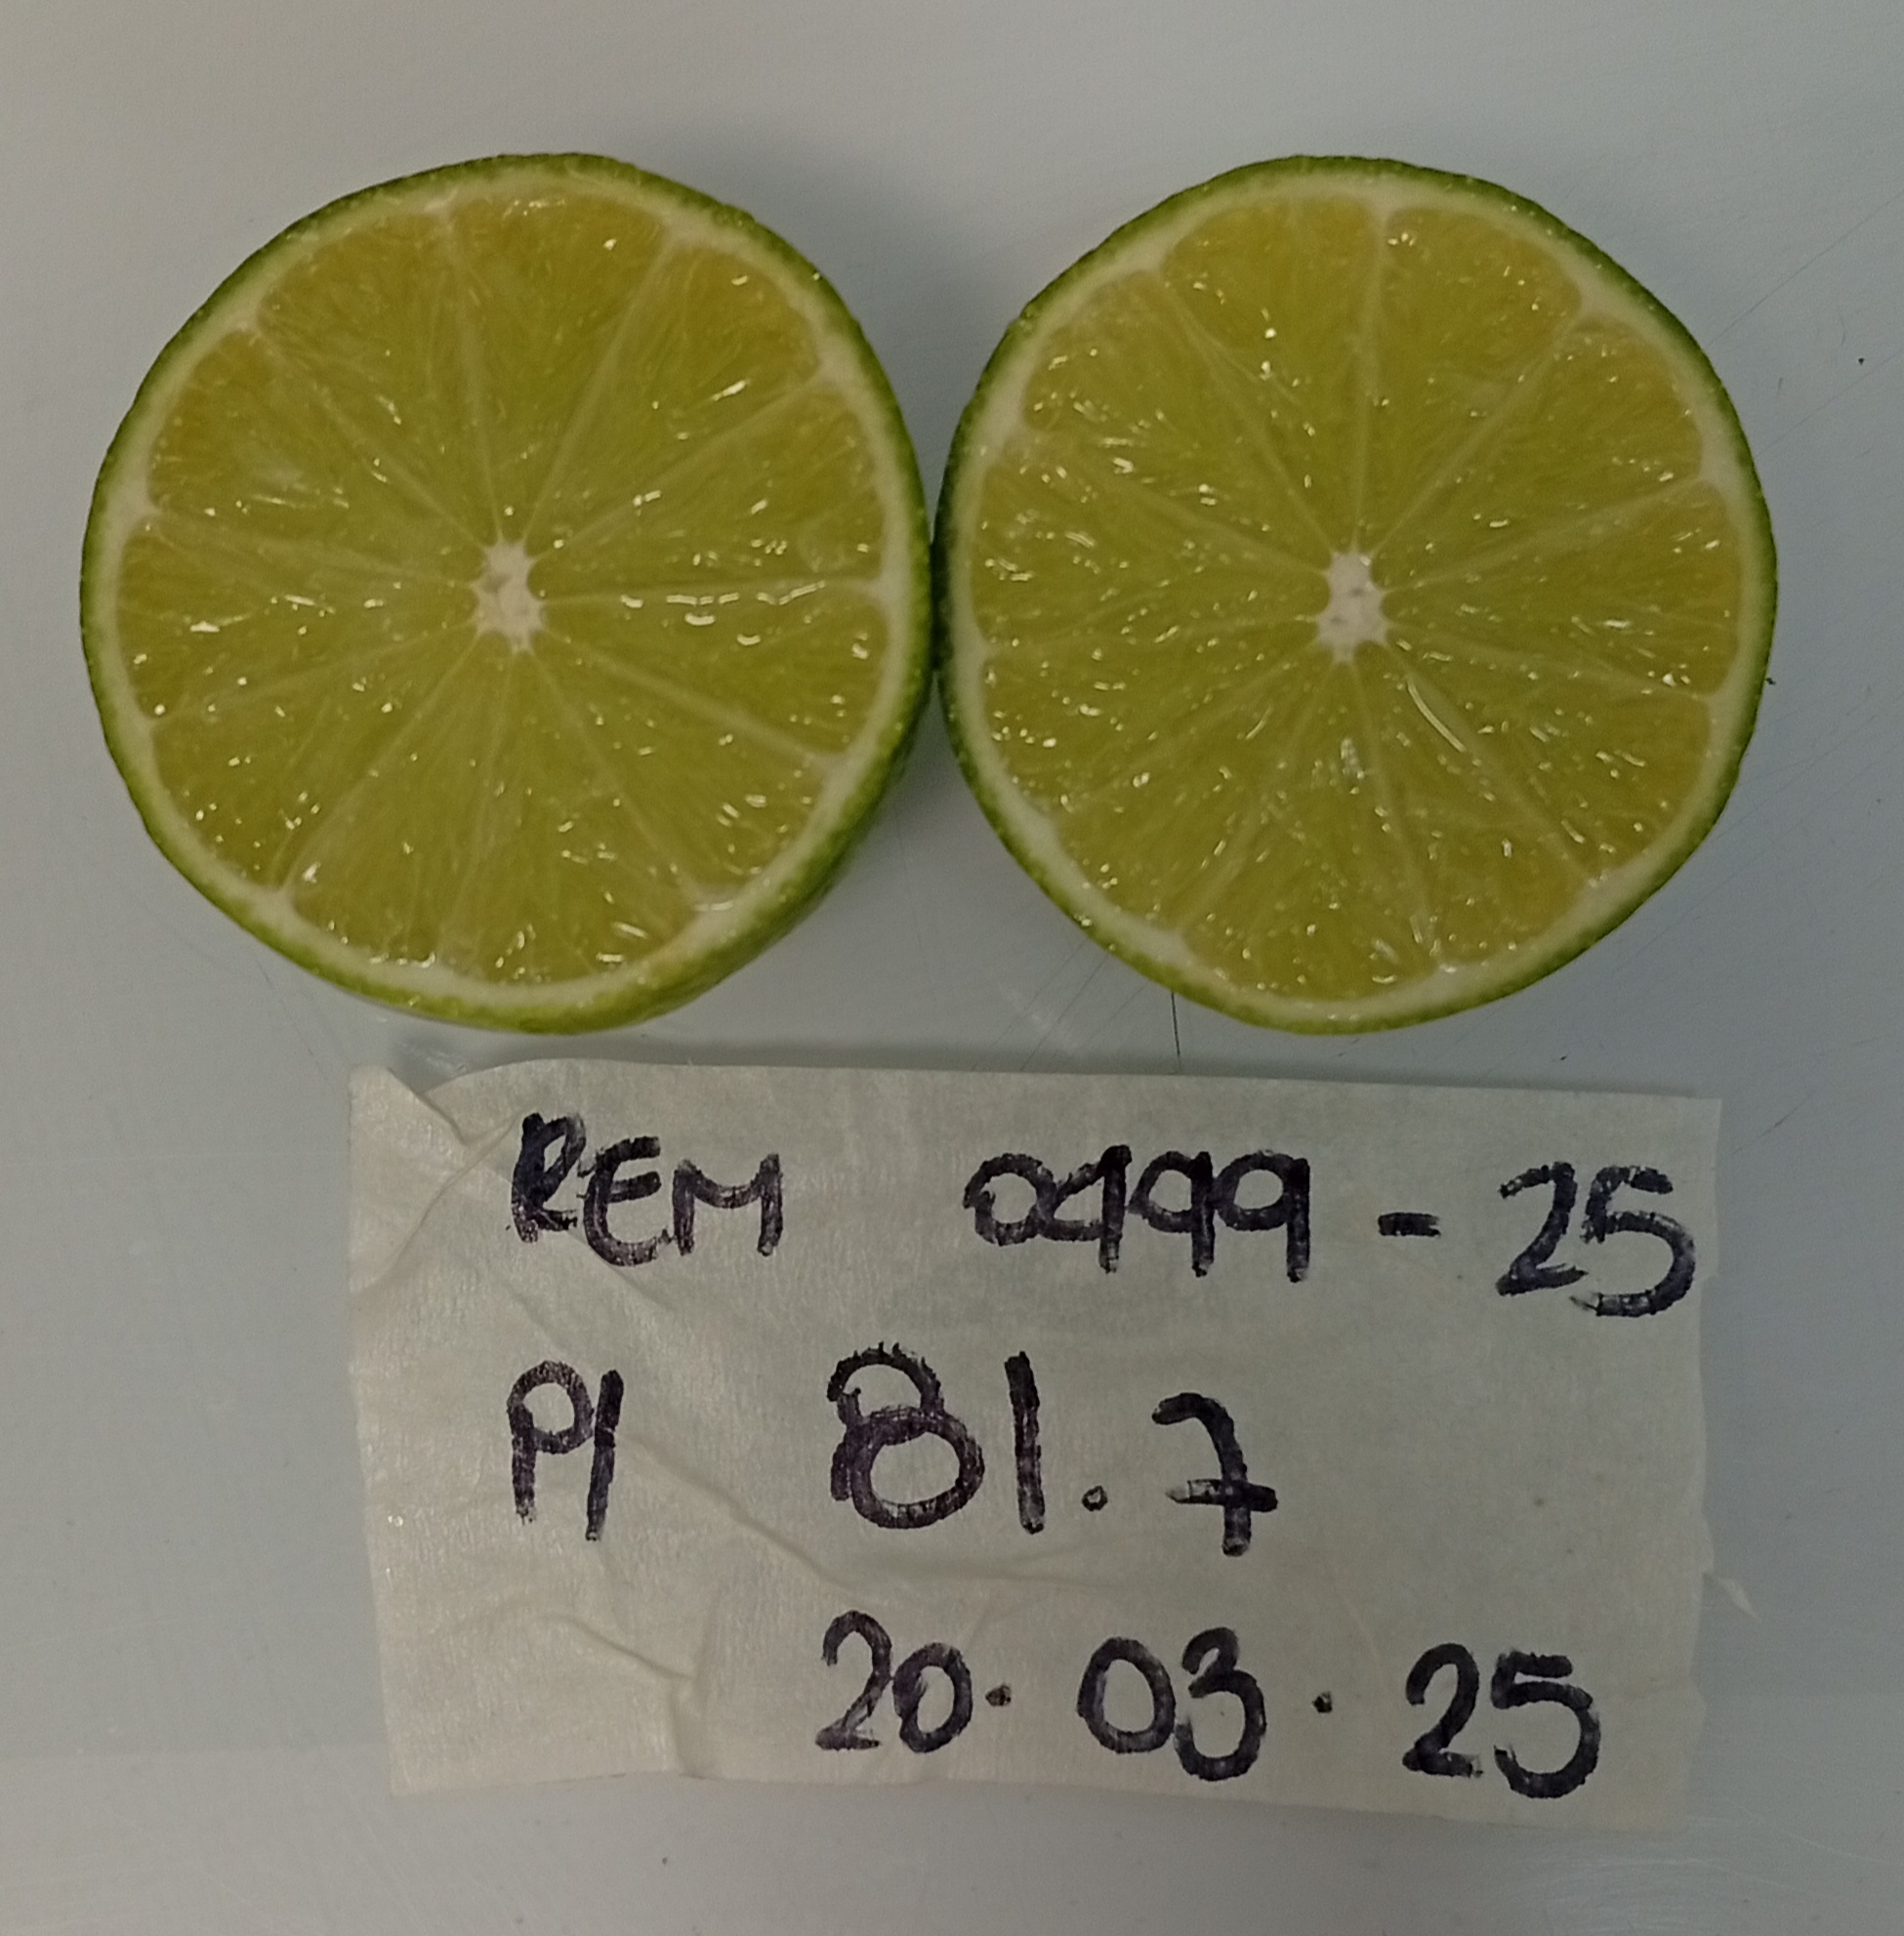 REM 0499 - 25
PI 81.7
20.03.25